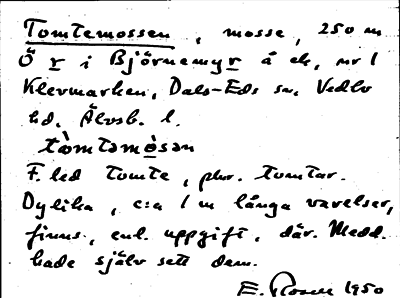 Tomtemossen, mosse, 250 m
Ö r i Björnemyr å ek, nr 1
Klevmarken, Dals-Eds sn, Vedbo
hd. Älvsb. l.
tòmtəmòsən
F. led tomte, plur. tomtar.
Dylika, c:a 1 m långa varelser,
finns, enl. uppgift, där. Medd.
hade själv sett dem.
E. Rosen 1950